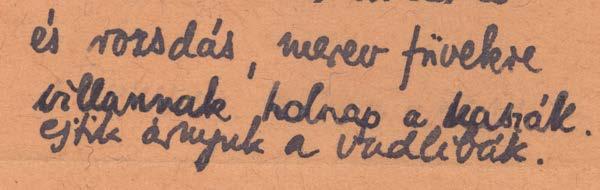 és rozsdás, merev füvekre
villannak holnap a kaszák.
ejtik árnyuk a vadlibák.